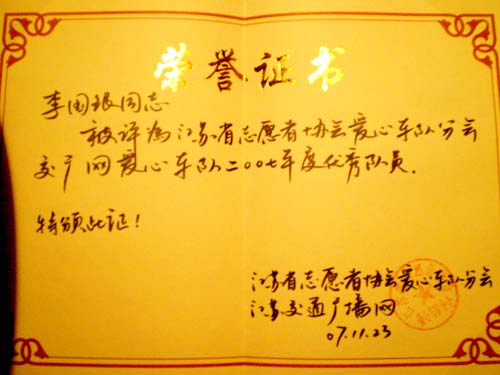 荣誉证书
李国银同志
被评为江苏省志愿者协会爱心车队分会
交广网爱心车队二〇〇七年度优秀队员.
特颁此证!
江苏省志愿者协会爱心车队分会
江苏交通广播网
07.11.23